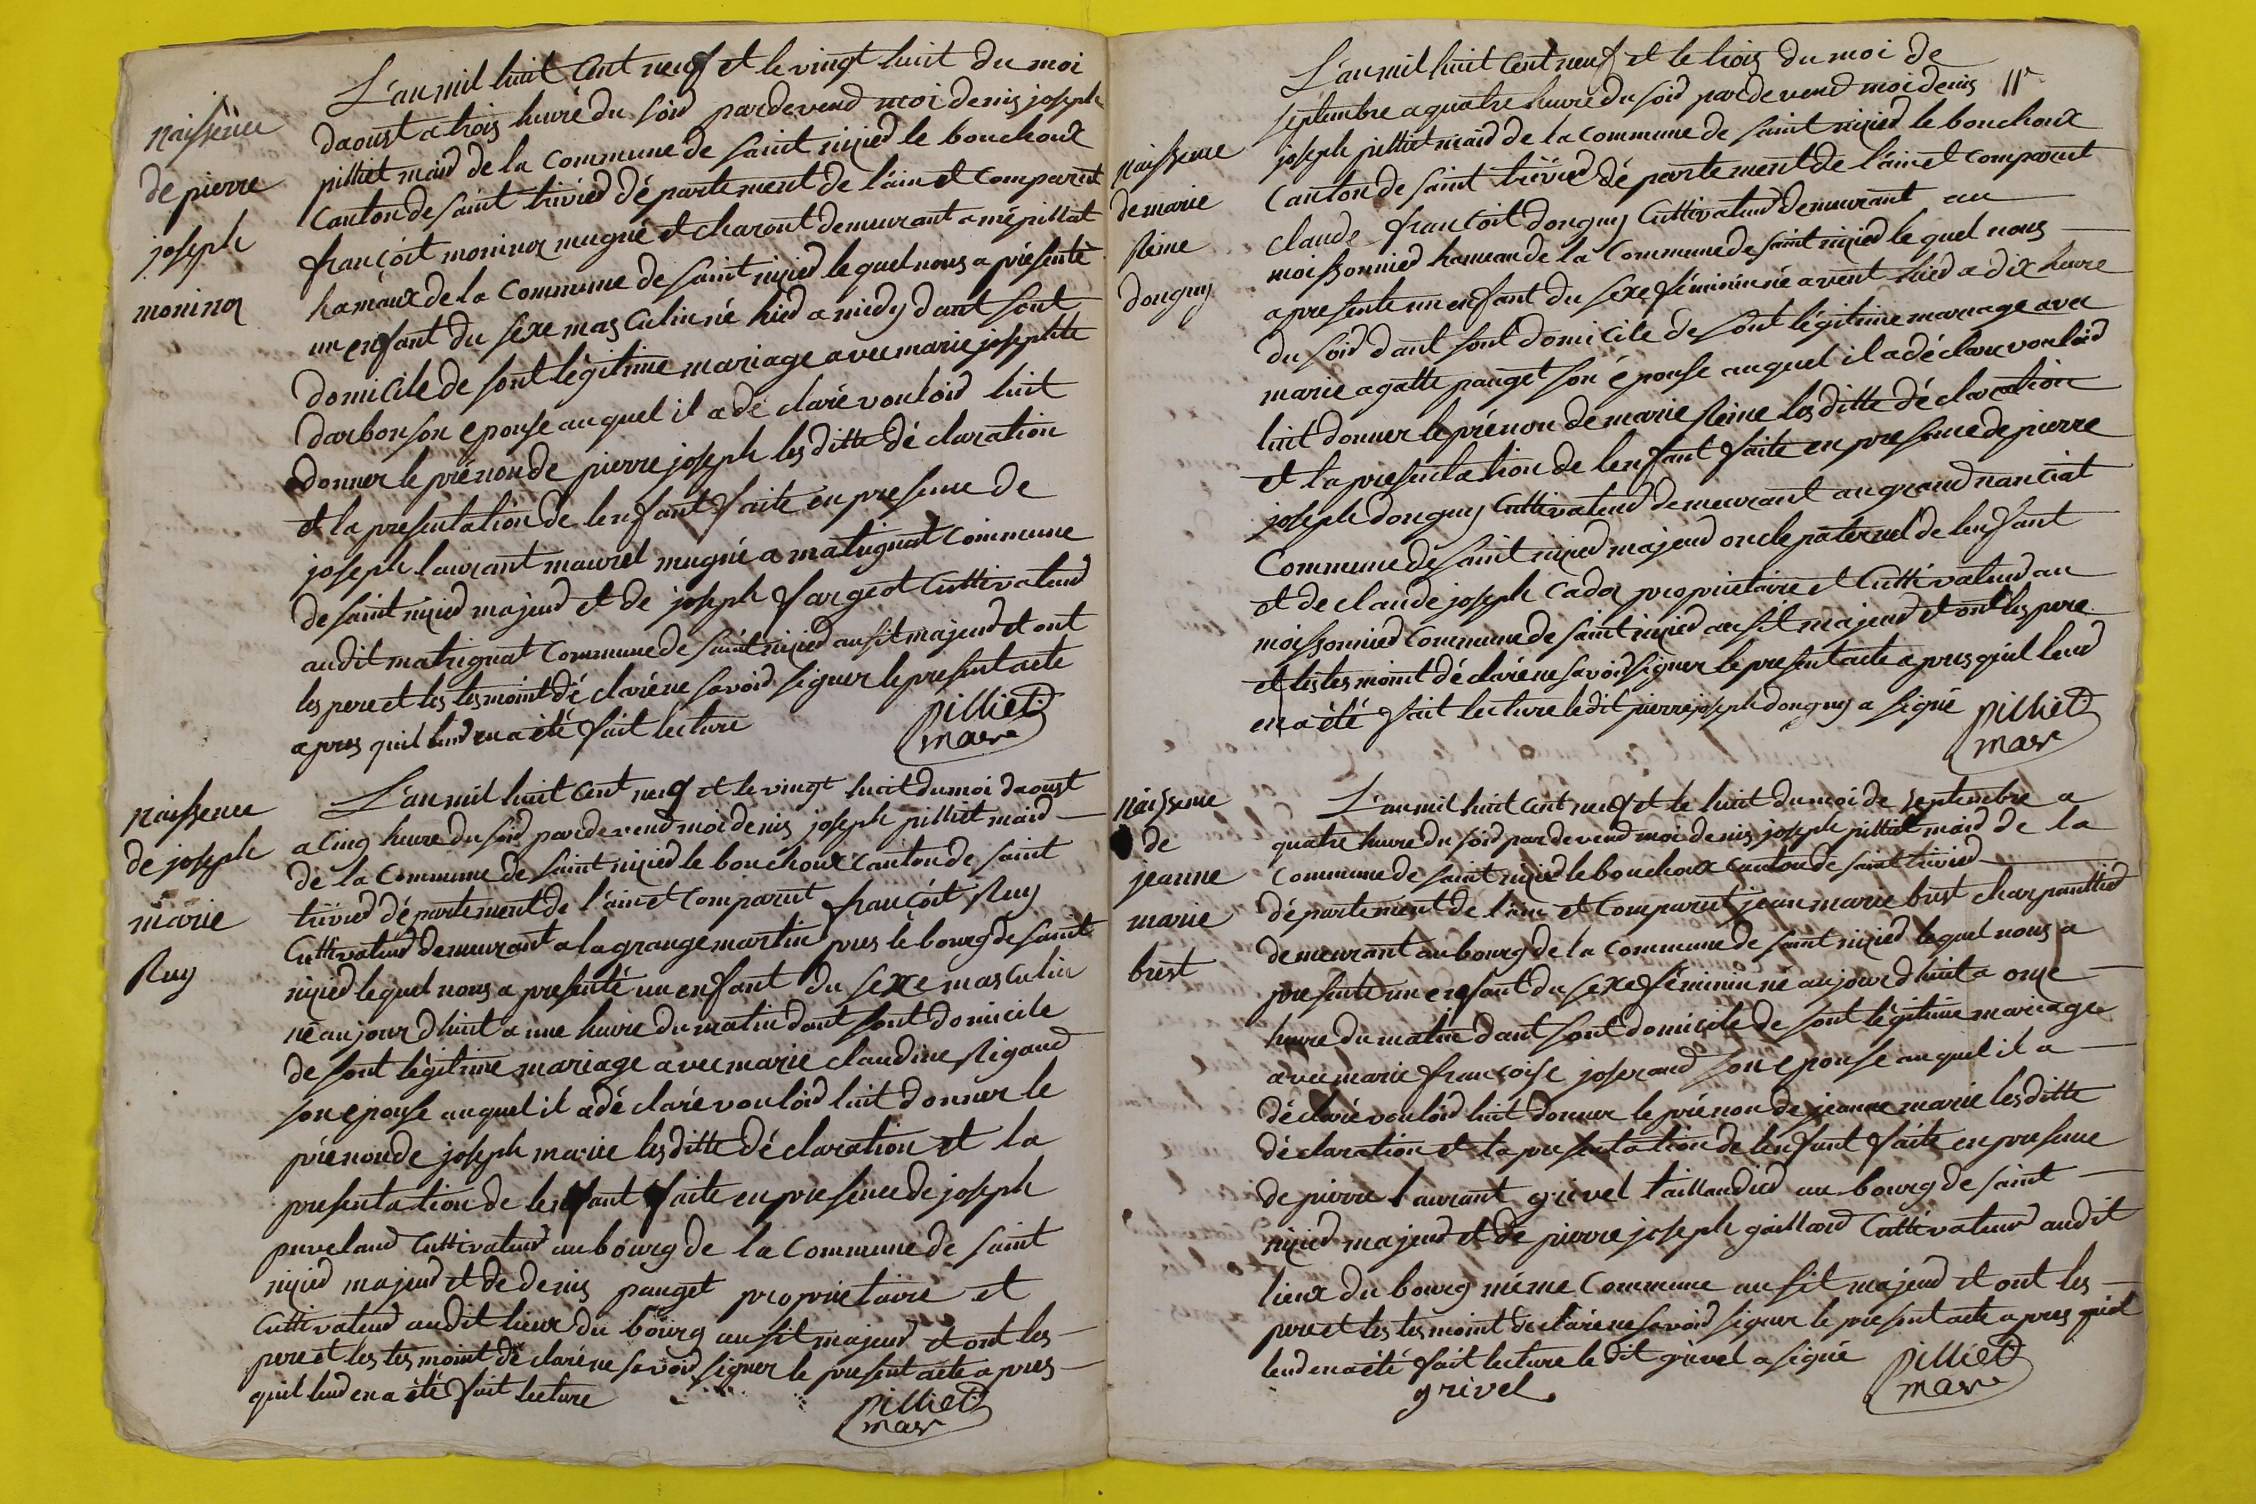 naissence
de pierre
joseph
moninot
L'an mil huit Cent neuf et le vingt huit du moi
daoust a trois heure du soid pardevend moi denis joseph
pilliet maid de la Commune de saint nizied le bouchoux
Canton de saint trivied département de l'ain et Comparut
françoit moninot mugnié et charont demeurant a mépillat
hamaux de la Commune de saint nizied lequel nous a présenté
un enfant du sexe masculin né hied a midy dant sont
domicile de sont légitime mariage avec marie josephte
darbon son épouse auquel il a dé claré vouloid luit
donner le prénon de pierre joseph les ditte dé claration
et la presentation de lenfant faite en presence de
joseph laurant maurel mugnié a matrignat Commune
de saint nizied majeud et de joseph fargeot Cultivateud
audit matrignat Commune de saint nizied ausit majeud et ont
les pere et les tesmoint dé claré ne savoid signer le present acte
apres quil leud en a été fait lecture
pilliet
mair
naissence
de joseph
marie
Ruy
L'an mil huit Cent neuf et le vingt huit du moi daoust
a Cinq heure du soid pardevend moi denis joseph pilliet maid
de la Commune de saint nizied le bouchoux Canton de saint
trivied département de l'ain et Comparut françoit Ruy
Cultivateud demeurant a la grange martin pres le bourg de saint
nizied lequel nous a presenté un enfant du sexe masculin
né aujourdhuit a une heure du matin dant sont domicile
de sont légitime mariage avec marie claudine Rigaud
son epouse auquel il a dé claré vouloid luit donner le
prénon de joseph marie les ditte dé claration et la
presentation de lenfant faite en presence de joseph
puveland Cultivateud au bourg de la Commune de saint
nizied majeud et de denis pauget propriétaire et
Cultivateud audit lieux du bourg ausit majeud et ont les
pere et les tesmoint dé claré ne savoid signer le present acte apres
quil leud en a été fait lecture
pilliet
mair
11e
naissence
de marie
Reine
donguy
L'an mil huit Cent neuf et le trois du moi de
septembre a quatre heure du soid pardevend moi denis
joseph pilliet maid de la Commune de saint nizied le bouchoux
Canton de saint trivied département de l'ain et Comparut
claude françoit donguy Cultivateud demeurant au
moissonnied hameau de la Commune de saint nizied le quel nous
a presenté un enfant du sexe féminin né avent hied a dix heure
du soid dant sont domicile de sont légitime mariage avec
marie agatte pauget son épouse auquel il a dé claré vouloid
luit donner le prénon de marie Reine les ditte dé claration
et la presentation de lenfant faite en presence de pierre
joseph donguy Cultivateud demeurant au grand nanciat
Commune de saint nizied majeud oncle paternel de lenfant
et de claude joseph Cadot propriétaire et Cultivateud au
moissonnied Commune de saint nizied ausit majeud et ont les pere
et les tesmoint dé claré ne savoid signer le present acte apres quil leud
en a été fait lecture ledit pierre joseph donguy a signé
pilliet
mair
naissence
de
jeanne
marie
brest
L'an mil huit Cent neuf et le huit du moi de septembre a
quatre heure du soid pardevend moi denis joseph pilliet maid de la
Commune de saint nizied le bouchoux Canton de saint trivied
département de l'ain et Comparut jean marie brest charpantied
demeurant au bourg de la Commune de saint nizied lequel nous a
presenté un enfant du sexe féminin né aujourdhuit a onze
heure du matin dant sont domicile de sont légitime mariage
avec marie françoise joserand son epouse auquel il a
déclaré vouloid luit donner le prénon de jeanne marie les ditte
dé claration et la presentation de lenfant faite en presence
de pierre laurant grivel taillandied au bourg de saint
nizied majeud et de pierre joseph gaillard Cultivateud audit
lieux du bourg même Commune ausit majeud et ont les
pere et les tesmoint dé claré ne savoid signer le present acte apres quil
leud en a été fait lecture le dit grivel a signé
grivel
pilliet
mair